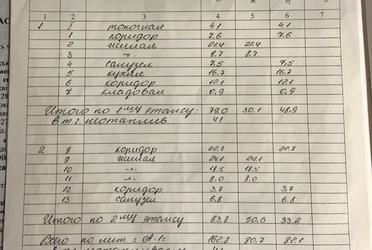 1 2 3 4 5 6 7
1 I топочная 4,1 4,1
1 коридор 7,6 7,6
2 жилая 21,4 21,4
3 -"- 8,7 8,7
4 санузел 7,5 7,5
5 кухня 16,7 16,7
6 коридор 12,1 12,1
7 кладовая 0,9 0,9
Итого по 1му этажу: 79,0 30,1 48,9
в т.г. неотаплив. 4,1
2 8 коридор 22,7 22,7
9 жилая 24,1 24,1
10 -"- 18,5 18,5
11 -"- 8,0 8,0
12 коридор 3,7 3,7
13 санузел 6,8 6,8
Итого по 2му этажу 83,8 50,6 33,2
Всего по лит. "А-1" 162,8 80,7 82,1